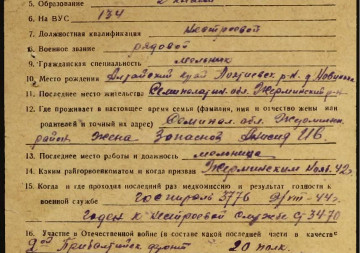 5. Образование
6. На ВУС 134
7. Должностная квалификация нестроевой
8. Военное звание рядовой
9. Гражданская специальность мельник
10. Место рождения Алтайский край р-н д.
11. Последнее место жительства Семипалат. обл. Жерминский р-н
12. Где проживает в настоящее время семья (фамилия, имя и отчество жены или
родителей и точный их адрес) обл.
район Жена
13. Последнее место работы и должность мельница
14. Каким райгорвоенкоматом и когда призван Жерминским 1942
15. Когда и где проходил последний раз медкомиссию и результат годности к
военной службе госпиталь 3776 42г.
годен к нестроевой службе ст 34-70
16. Участие в Отечественной войне (в составе какой последней части в качестве
2ой Прибалтийск фронт 20 полк.